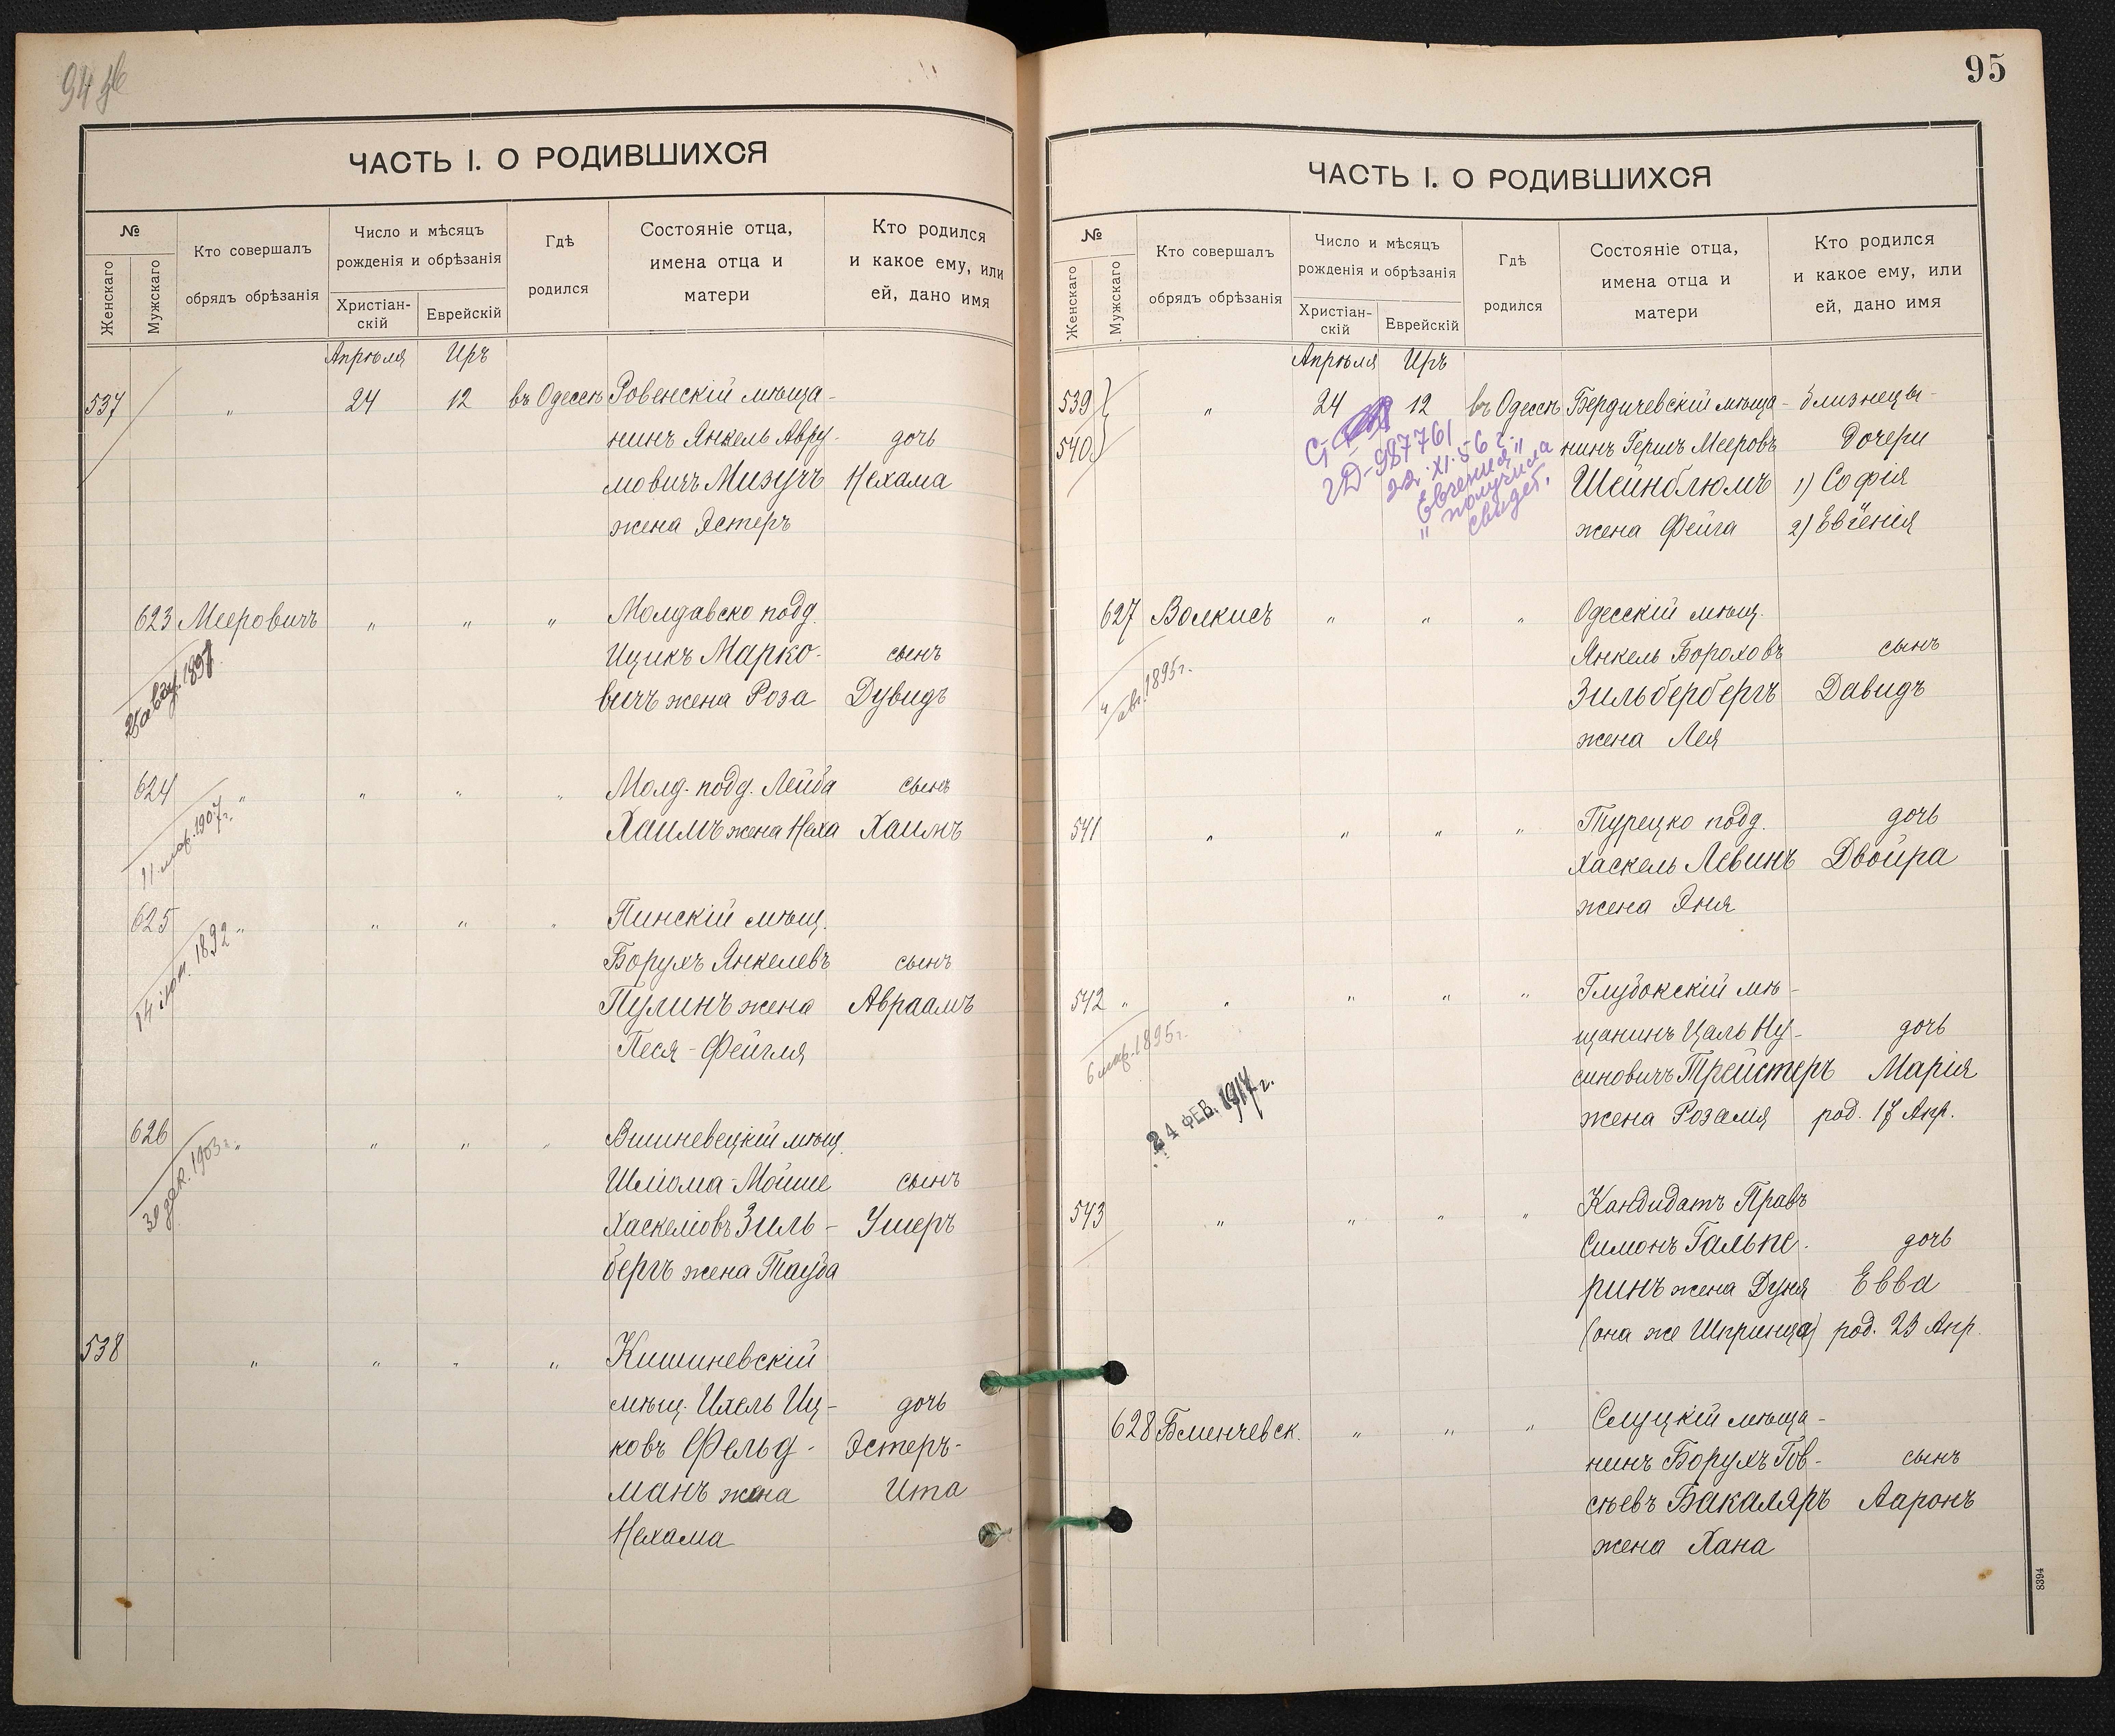 ЧАСТЬ I. О РОДИВШИХСЯ
№
Женскаго
Мужскаго
Кто совершалъ
обрядъ обрѣзанія
Число и мѣсяцъ
рожденія и обрѣзанія
Христіан-
скій
Еврейскій
Гдѣ
родился
Состояніе отца,
имена отца и
матери
Кто родился
и какое ему, или
ей, дано имя
Апрѣля Иръ
537 " 24 12 въ Одессѣ Ровенскій мѣща-
нинъ Янкель Авру- дочь
мовичъ Мизучъ Нехама
жена Эстеръ
623 Мееровичъ " " " Молдавско подд.
Ицикъ Марко- сынъ
вичъ жена Роза Дувидъ
25 авгу. 1897
624 " " " " Молд. подд. Лейба сынъ
Хаимъ жена Неха Хаимъ
11 мар. 1907 г.
625 " " " " Пинскій мѣщ.
Борухъ Янкелевъ сынъ
Пулинъ жена Авраамъ
Песя-Фейгля
14 1892
626 " " " " Вишневецкій мѣщ.
Шліома-Мойше сынъ
Хаскеліовъ Зиль- Ушеръ
бергъ жена Тауба
30 дек. 1903 г.
538 " " " " Кишиневскій
мѣщ. Ихель Иц- дочь
ковъ Фельд- Эстеръ-
манъ жена Ита
Нехама
95
ЧАСТЬ I. О РОДИВШИХСЯ
№
Женскаго
Мужскаго
Кто совершалъ
обрядъ обрѣзанія
Число и мѣсяцъ
рожденія и обрѣзанія
Христіан-
скій
Еврейскій
Гдѣ
родился
Состояніе отца,
имена отца и
матери
Кто родился
и какое ему, или
ей, дано имя
Апрѣля Иръ
539 " 24 12 въ Одессѣ Бердичевскій мѣща- близнецы-
540 нинъ Гершъ Мееровъ дочери
Шейнблюмъ 1) Софія
жена Фейга 2) Евгенія
ГД-987761
22.XI.56 г.
Евгения"
" получила
свидет.
627 Волкисъ " " " Одесскій мѣщ.
Янкель Бороховъ сынъ
Зильбербергъ Давидъ
жена Лея
авг. 1895 г.
541 " " " " Турецко подд. дочь
Хаскель Левинъ Двойра
жена Эня
542 " " " " " Глубокскій мѣ-
щанинъ Цаль Ну- дочь
синовичъ Трейстеръ Марія
жена Розалія род. 17 Апр.
6 мар. 1895 г.
24 ФЕВ. 1917 г.
543 " " " " Кандидатъ Правъ
Симонъ Гальпе- дочь
ринъ жена Дуня Евва
(она же Шпринца) род. 23 Апр.
628 Бменчевск. " " " Слуцкій мѣща-
нинъ Борухъ Гов- сынъ
сѣевъ Бакаляръ Ааронъ
жена Хана
8394